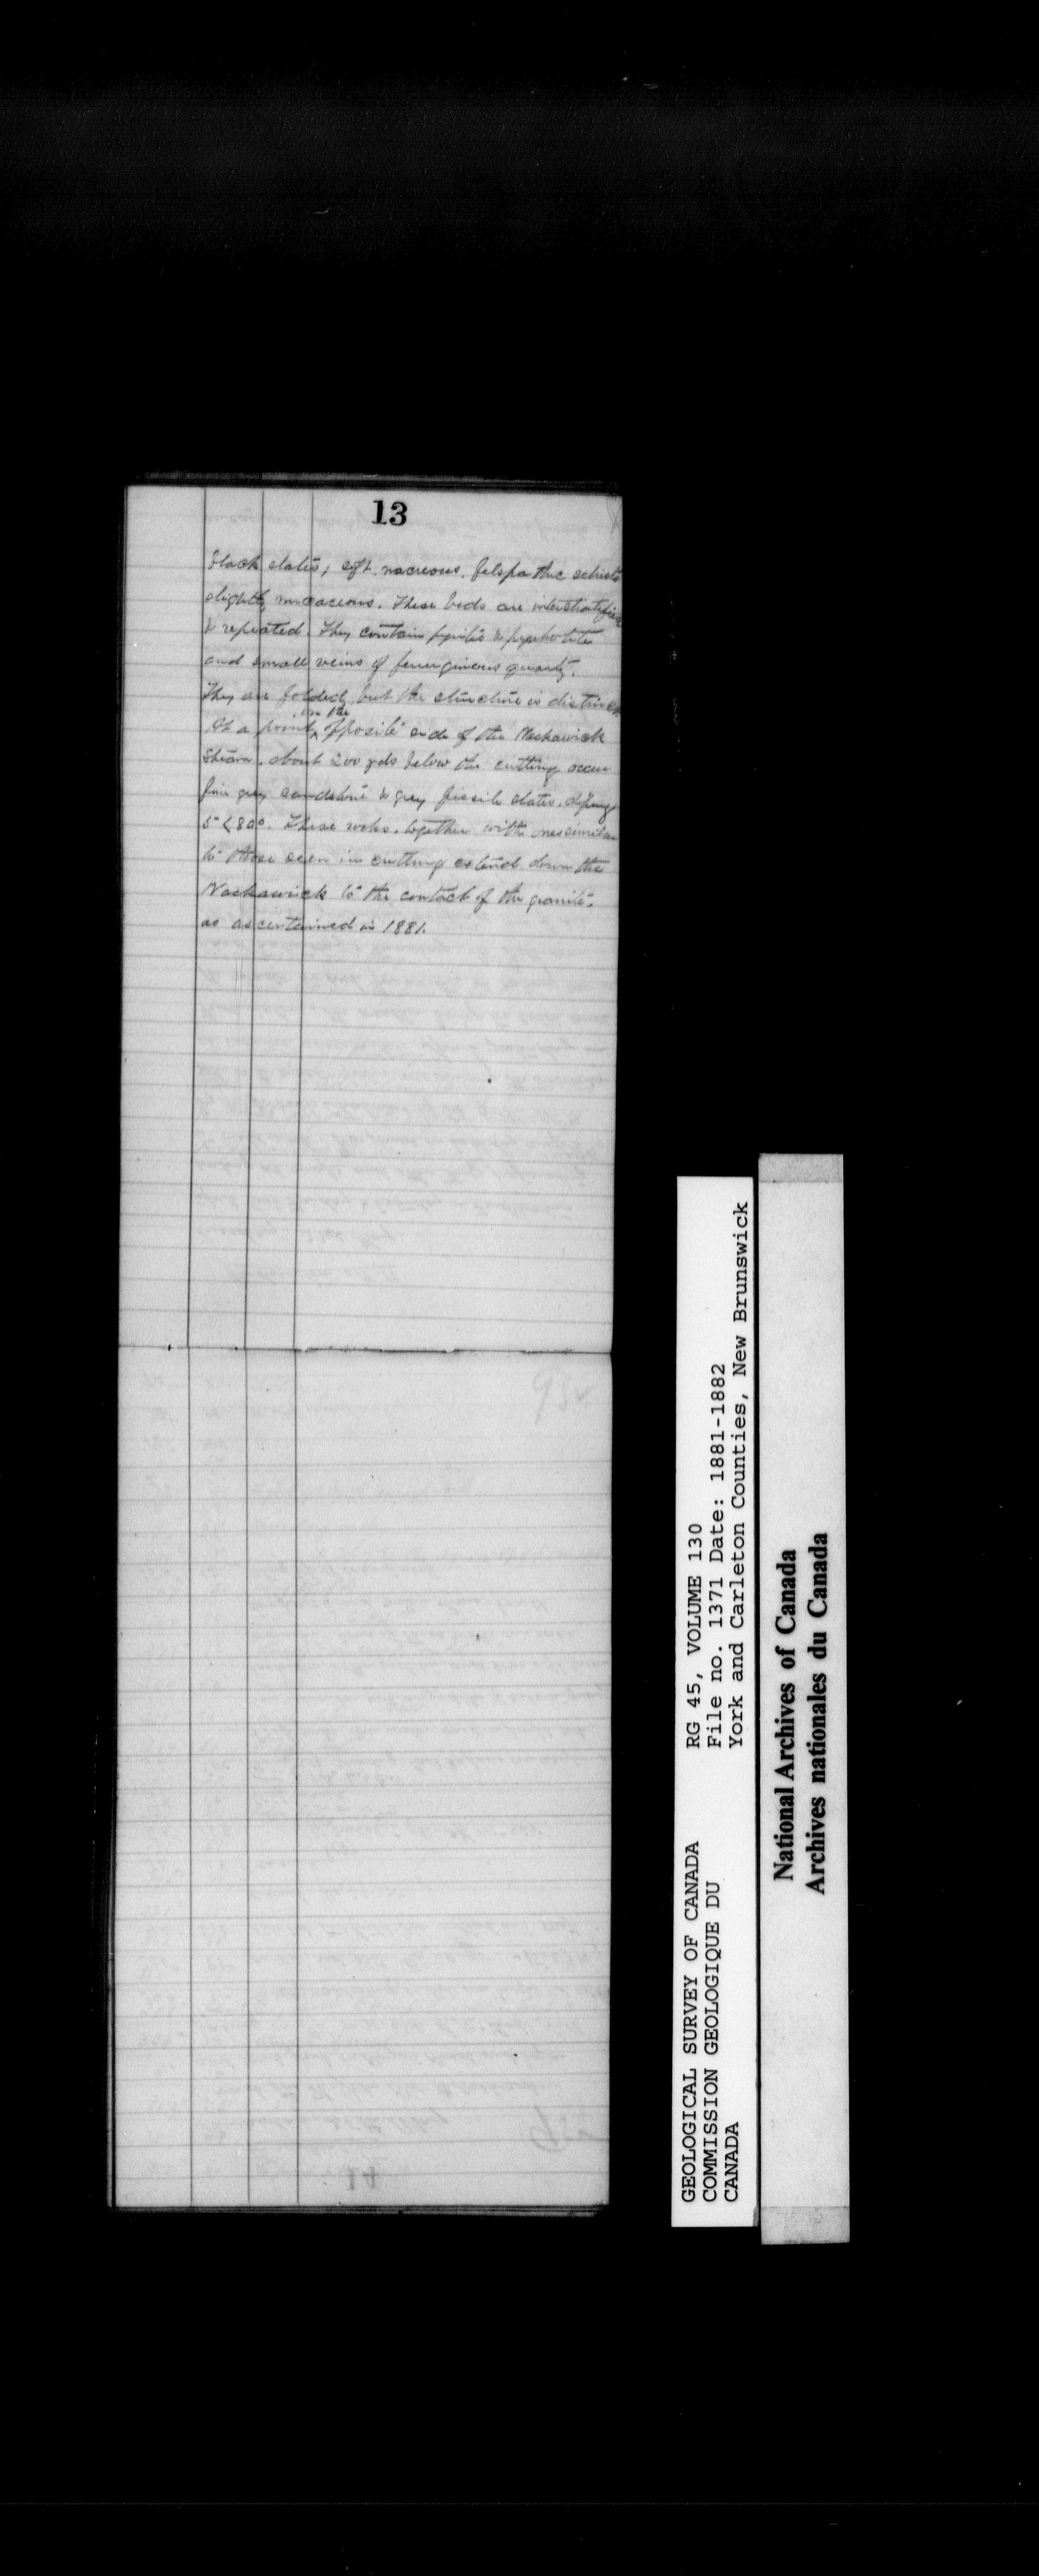 13
black slates; soft nacreous, felspathic schists
slightly micaceous. These beds are interstratified
& repeated. They contain pyrites &
and small veins of ferruginous quartz.
They are folded, but the structure is distinct
At a point on the opposite side of the Nackawick
Stream, about 200 yds below the cutting occur
fine grey sandstone & grey fissile slates, dipping
S < 80°. These rocks, together with ones similar
to those seen in cutting extend down the
Nackawick to the contact of the granite.
as ascertained in 1881.
14
GEOLOGICAL SURVEY OF CANADA
COMMISSION GEOLOGIQUE DU
CANADA
RG 45, VOLUME 130
File no. 1371 Date: 1881-1882
York and Carleton Counties, New Brunswick
National Archives of Canada
Archives nationales du Canada